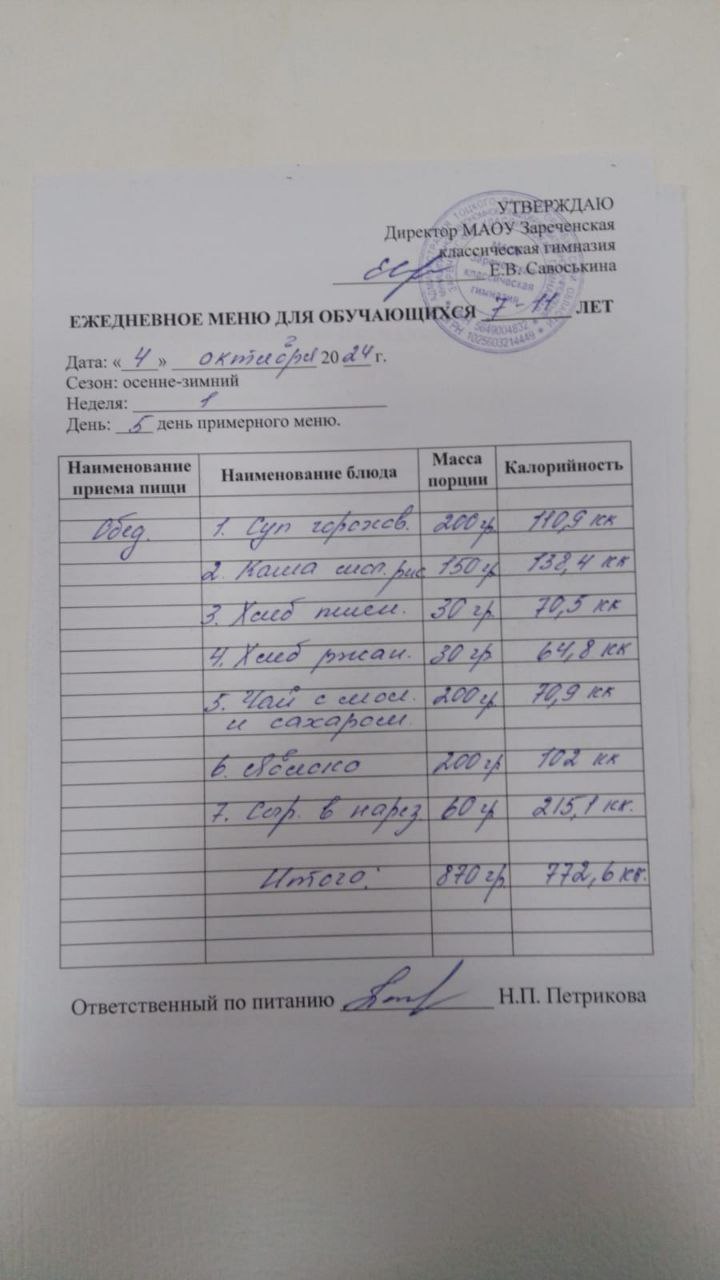 УТВЕРЖДАЮ
Директор МАОУ Зареченская
классическая гимназия
Е.В. Савоськина
ЕЖЕДНЕВНОЕ МЕНЮ ДЛЯ ОБУЧАЮЩИХСЯ 7-11 ЛЕТ
Дата: «4» октября 2024 г.
Сезон: осенне-зимний
Неделя: 1
День: 5 день примерного меню.
Наименование приема пищи Наименование блюда Масса порции Калорийность
Обед. 1. Суп горохов. 200 гр 110,9 кк
2. Каша мол. рис 150 гр 138,4 кк
3. Хлеб пшен. 30 гр 70,5 кк
4. Хлеб ржан. 30 гр 64,8 кк
5. Чай с мол. 200 гр 70,9 кк
и сахаром.
6. Яблоко 200 гр 102 кк
7. Сыр. в нарез. 60 гр 215,1 кк.
Итого: 870 гр 772,6 кк.
Ответственный по питанию Н.П. Петрикова
классическая
гимназия
5649004832
1025603214449